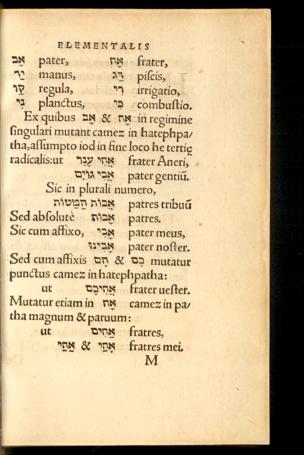 ELEMENTALIS
אָב pater, אָח frater,
יָד manus, דָּג piscis,
קָו regula, רִי irrigatio,
נִי planctus, כִּי combustio.
Ex quibus אָח & אָב in regimine
singulari mutant camez in hatephpa⸗
tha, assumpto iod in fine loco he tertię
radicalis: ut אֲחִי עָנֵר frater Aneri,
אֲבִי גוֹיִם pater gentiū.
Sic in plurali numero,
אֲבוֹת הַמַּטּוֹת patres tribuū
Sed absolutè אָבוֹת patres.
Sic cum affixo, אָבִי pater meus,
אָבִינוּ pater noster.
Sed cum affixis כֶם & הֶם mutatur
punctus camez in hatephpatha:
ut אֲחִיכֶם frater uester.
Mutatur etiam in אָח camez in pa⸗
tha magnum & paruum:
ut אַחִים fratres,
אַחַי & אֶחָי fratres mei.
M